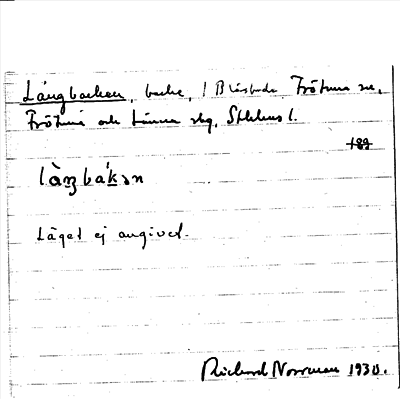 Långbacken, backe, i Blåsboda Frötuna sn,
Frötuna och Länna skg, Sthlms l.
189
là̀ŋbák̠ən
Läget ej angivet.
Richard Norrman 1930.